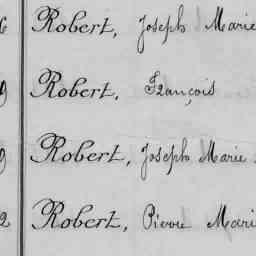 6 Robert, Joseph Marie
9 Robert, François
9 Robert, Joseph Marie
2 Robert, Pierre Mari